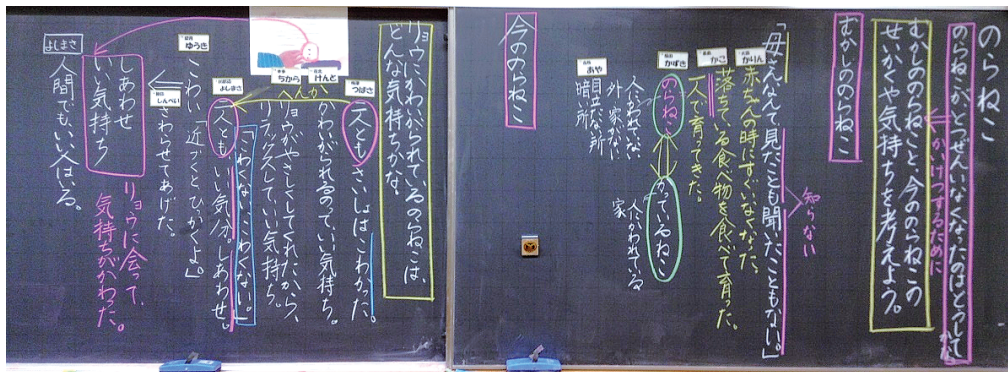 のらねこ
のらねこが、とつぜんいなくなったのはどうして
かな
かいけつするために
むかしののらねこと、今ののらねこの
せいかくや気持ちを考えよう。
むかしののらねこ
知らない
「母さんなんて、見たことも聞いたこともない。」
かりん
赤ちゃんの時にすぐいなくなった。
かこ
落ちている食べ物を食べて育った。
一人で育ってきた。
かずき
のらねこ
かっているねこ
人にかわれていない
外 家がない
人にかわれている
家
あや
目立たない所
暗い所
今ののらねこ
リョウにかわいがられているのらねこは、
どんな気持ちかな。
つばさ
二人とも
さいしょはこわかった。
へんか
けんと
かわいがられるのって、いい気持ち。
ちから
リョウがやさしくしてくれたから、
リラックスして、いい気持ち。
「こわくない、こわくない。」
よしまさ
二人とも
いい気分。しあわせ。
ゆうき
こわい「近づくと、ひっかくよ。」
しんぺい
さわらせてあげた。
しあわせ
いい気持ち
リョウに会って、
気持ちがかわった。
よしまさ
人間でも、いい人はいる。